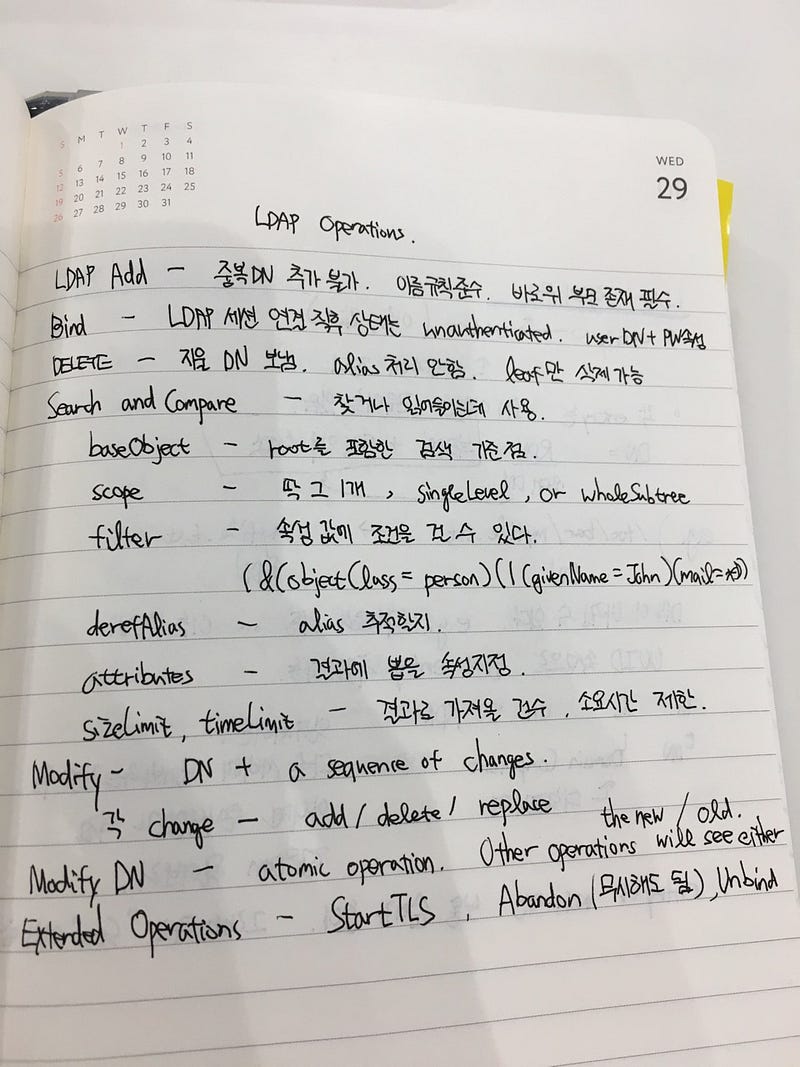 S M T W T F S
1 2 3 4
5 6 7 8 9 10 11
12 13 14 15 16 17 18
19 20 21 22 23 24 25
26 27 28 29 30 31
WED
29
LDAP Operations.
LDAP Add - 중복DN 추가 불가. 이름규칙준수. 바로위 부모 존재 필수.
Bind - LDAP 세션 연결 직후 상태는 unauthenticated. user DN + PW속성
DELETE - 지울 DN 보냄. alias 처리 안함. leaf만 삭제 가능
Search and Compare - 찾거나 읽어들이는데 사용.
baseObject - root를 포함한 검색 기준점.
scope - 딱 그 1개, singleLevel, or wholeSubtree
filter - 속성 값에 조건을 건 수 있다.
(&(objectClass=person)(|(givenName=John)(mail=*)))
derefAlias - alias 추적할지.
attributes - 결과에 뽑을 속성지정.
sizeLimit, timeLimit - 결과로 가져올 건수, 소요시간 제한.
Modify - DN + a sequence of changes.
각 change - add/delete/replace
Modify DN - atomic operation. Other operations will see either the new / old.
Extended Operations - StartTLS, Abandon (무시해도 됨), Unbind